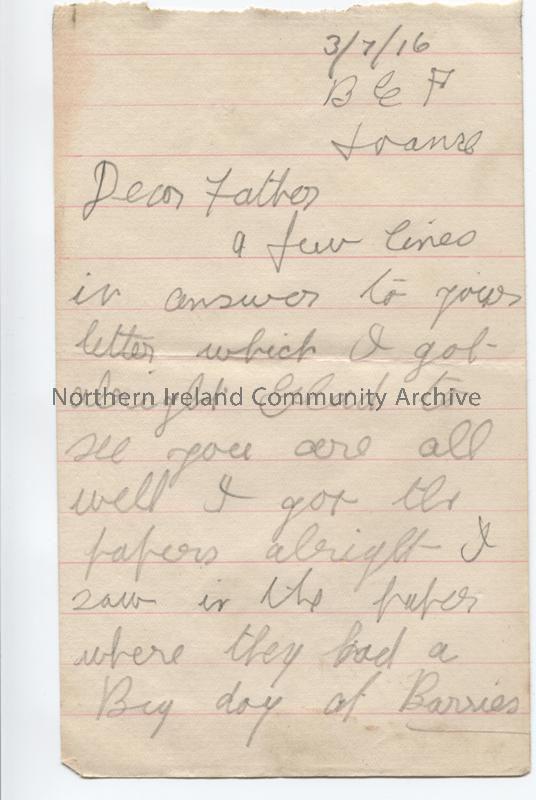 3/7/16
B E F
France
Dear Father
a few lines
in answer to yours
letter which I got
alright Glad to
Northern Ireland Community Archive
see you are all
well I got the
papers alright I
saw in the paper
where they had a
Big day at Barries